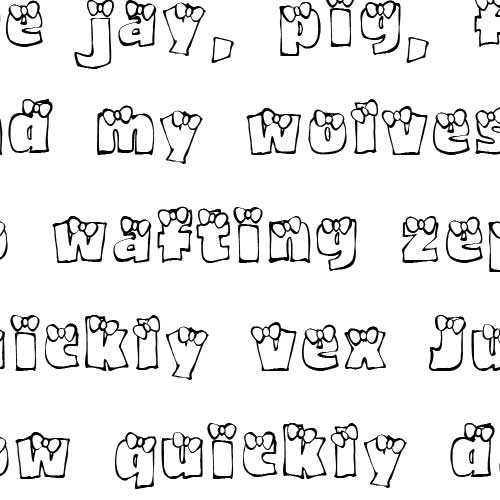 e jay, pig, f
nd my wolves
o wafting zep
ickly vex Ju
ow quickly da